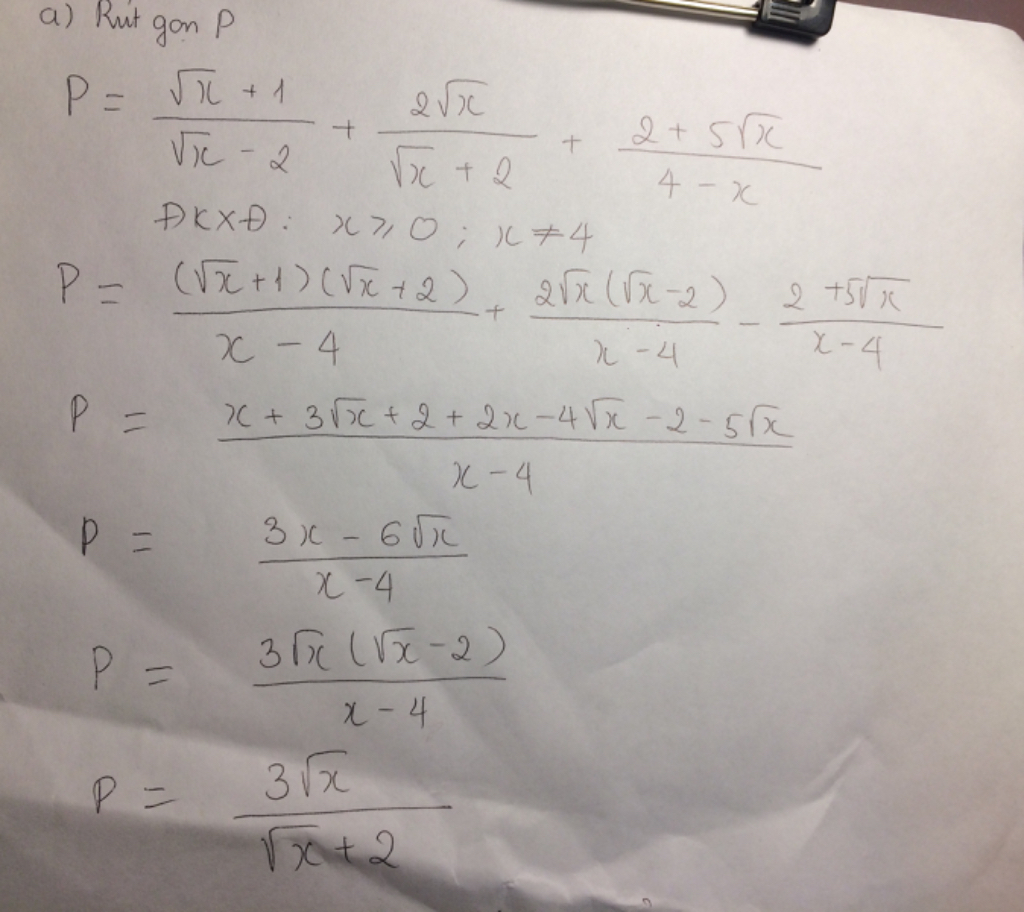 a) Rút gọn P
P = (√x + 1)/(√x - 2) + 2√x/(√x + 2) + (2 + 5√x)/(4 - x)
ĐKXĐ: x ≥ 0 ; x ≠ 4
P = (√x + 1)(√x + 2)/(x - 4) + 2√x(√x - 2)/(x - 4) - (2 + 5√x)/(x - 4)
P = (x + 3√x + 2 + 2x - 4√x - 2 - 5√x)/(x - 4)
P = (3x - 6√x)/(x - 4)
P = 3√x(√x - 2)/(x - 4)
P = 3√x/(√x + 2)